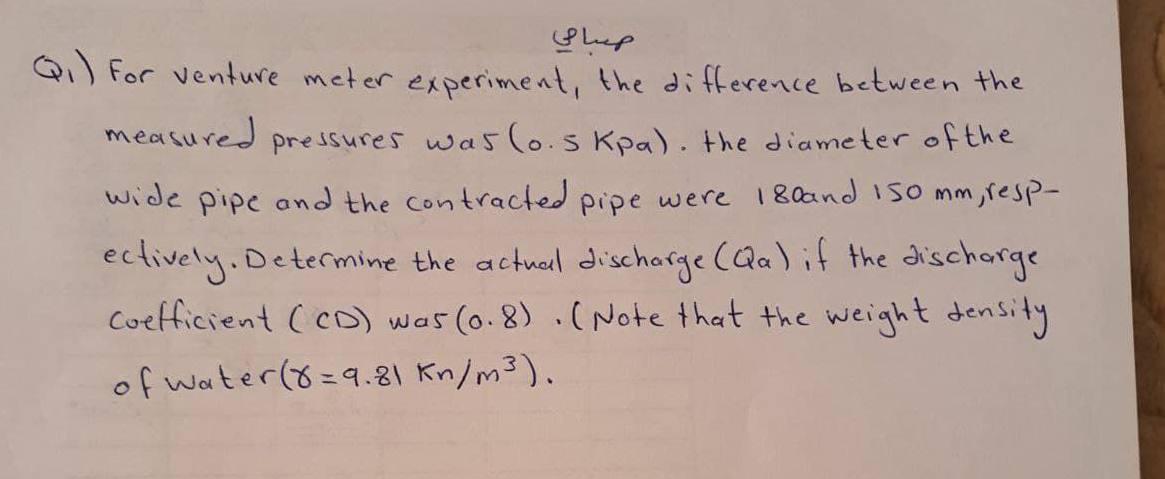 صباحي
Q1) For venture meter experiment, the difference between the
measured pressures was (0.5 Kpa). the diameter of the
wide pipe and the contracted pipe were 180 and 150 mm, resp-
ectively. Determine the actual discharge (Qa) if the discharge
Coefficient (CD) was (0.8). (Note that the weight density
of water (γ = 9.81 Kn/m³).